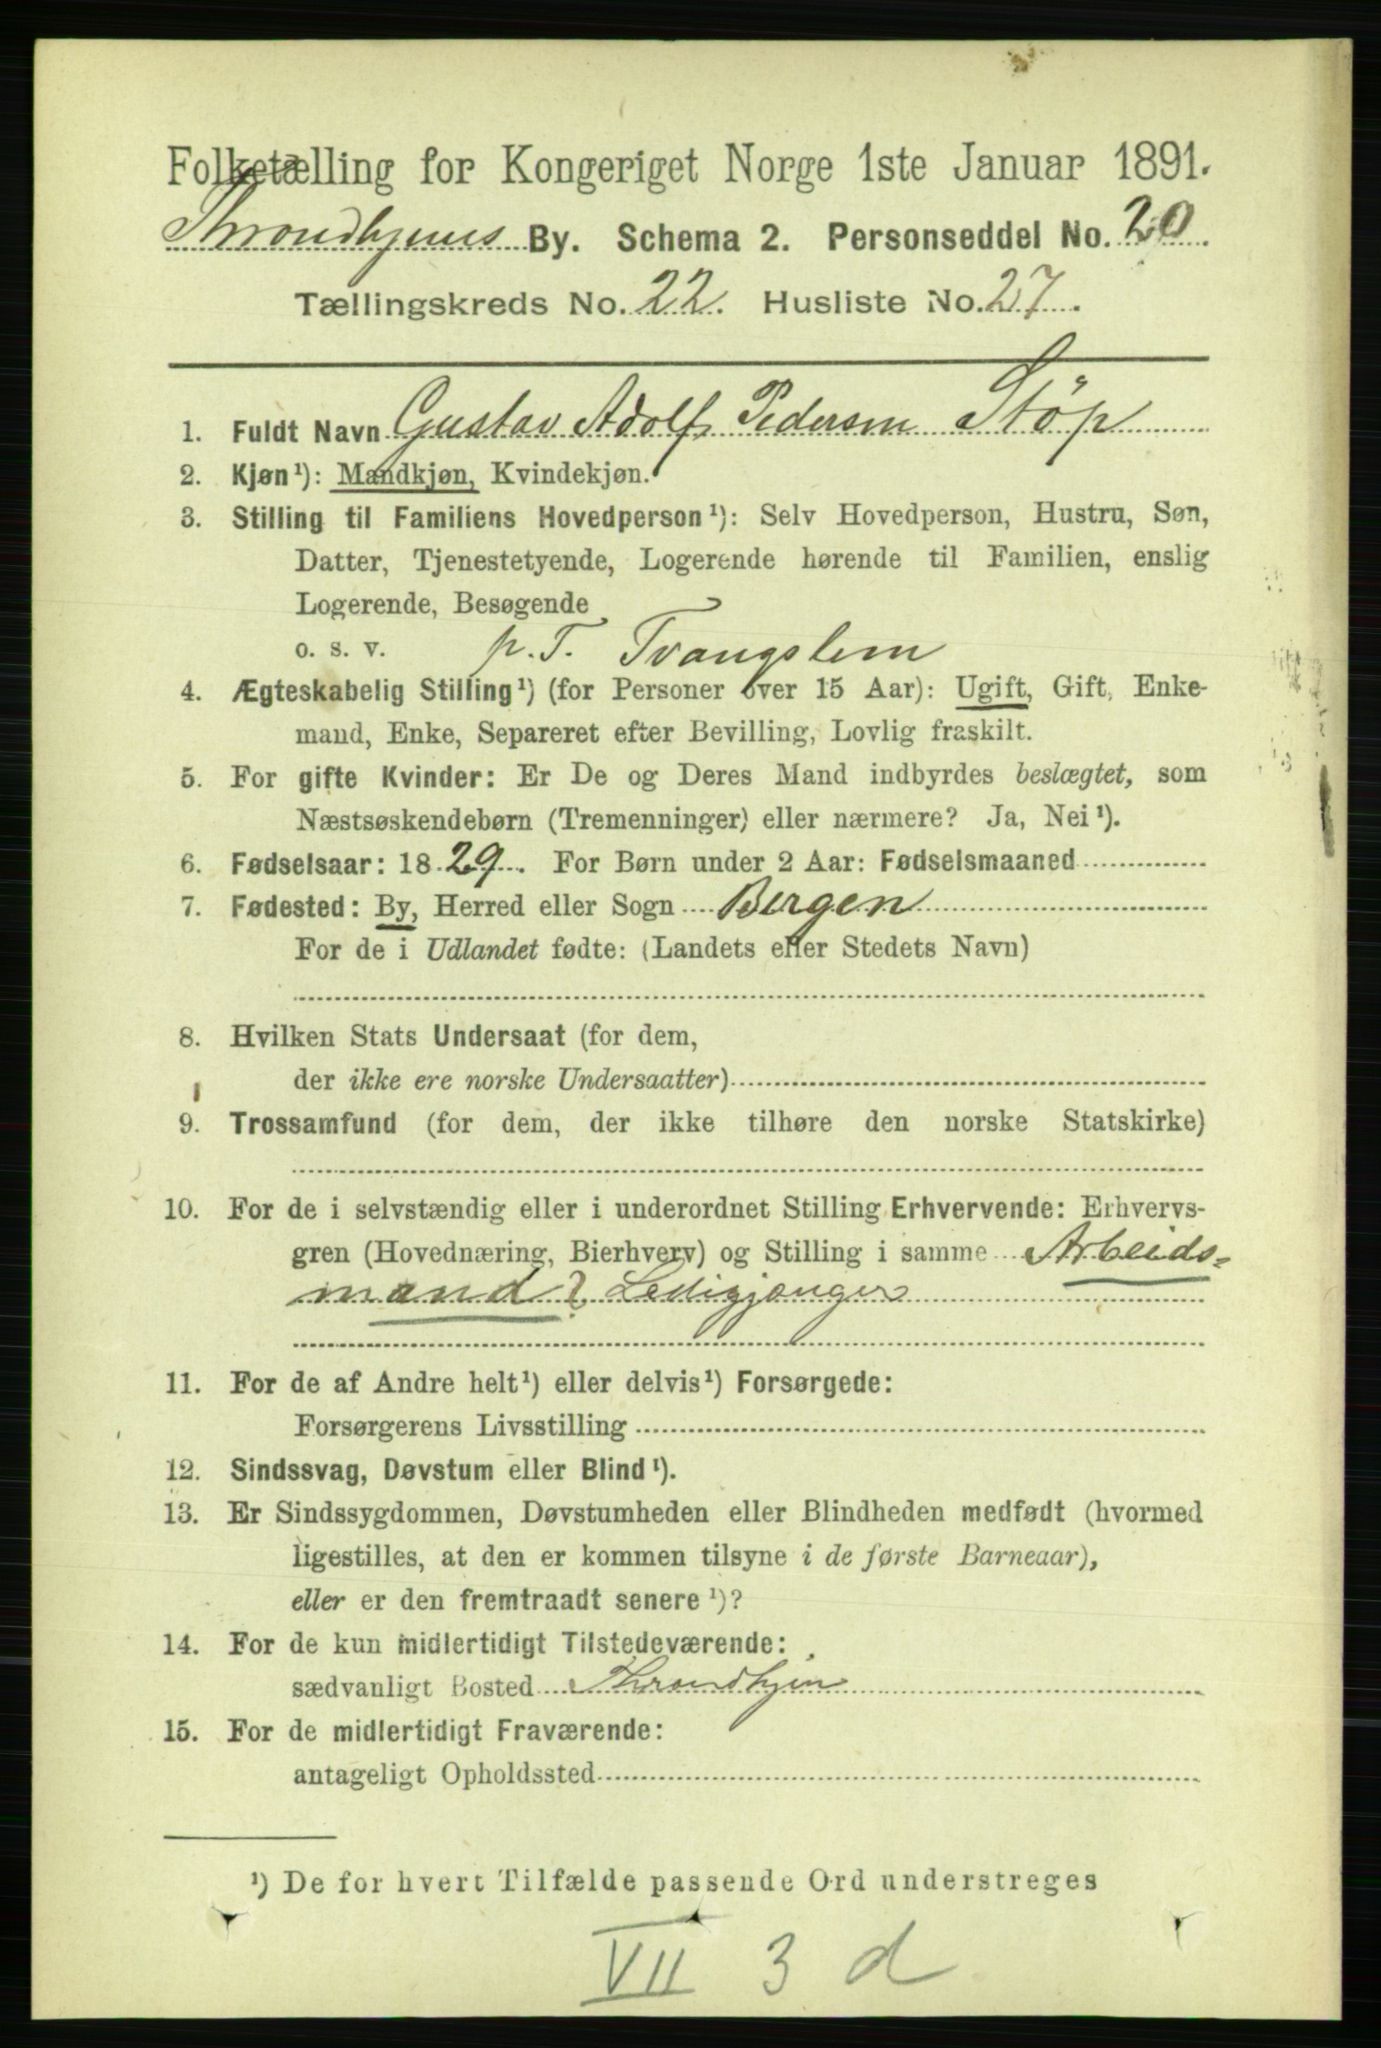 Folketælling for Kongeriget Norge 1ste Januar 1891.
Throndhjems By. Schema 2. Personseddel No. 20
Tællingskreds No. 22. Husliste No. 27.
1. Fuldt Navn Gustav Adolf Pedersen Stöp
2. Kjøn¹): Mandkjøn, Kvindekjøn.
3. Stilling til Familiens Hovedperson¹): Selv Hovedperson, Hustru, Søn,
Datter, Tjenestetyende, Logerende hørende til Familien, enslig
Logerende, Besøgende
o. s. v. p. T. Tvangslem
4. Ægteskabelig Stilling¹) (for Personer over 15 Aar): Ugift, Gift, Enke-
mand, Enke, Separeret efter Bevilling, Lovlig fraskilt.
5. For gifte Kvinder: Er De og Deres Mand indbyrdes beslægtet, som
Næstsøskendebørn (Tremenninger) eller nærmere? Ja, Nei¹).
6. Fødselsaar: 1829. For Børn under 2 Aar: Fødselsmaaned
7. Fødested: By, Herred eller Sogn Bergen
For de i Udlandet fødte: (Landets eller Stedets Navn)
8. Hvilken Stats Undersaat (for dem,
der ikke ere norske Undersaatter)
9. Trossamfund (for dem, der ikke tilhøre den norske Statskirke)
10. For de i selvstændig eller i underordnet Stilling Erhvervende: Erhvervs-
gren (Hovednæring, Bierhverv) og Stilling i samme Arbeids-
mand? Ledigjænger
11. For de af Andre helt¹) eller delvis¹) Forsørgede:
Forsørgerens Livsstilling
12. Sindssvag, Døvstum eller Blind¹).
13. Er Sindssygdommen, Døvstumheden eller Blindheden medfødt (hvormed
ligestilles, at den er kommen tilsyne i de første Barneaar),
eller er den fremtraadt senere¹)?
14. For de kun midlertidigt Tilstedeværende:
sædvanligt Bosted Throndhjem
15. For de midlertidigt Fraværende:
antageligt Opholdssted
¹) De for hvert Tilfælde passende Ord understreges
VII 3 d